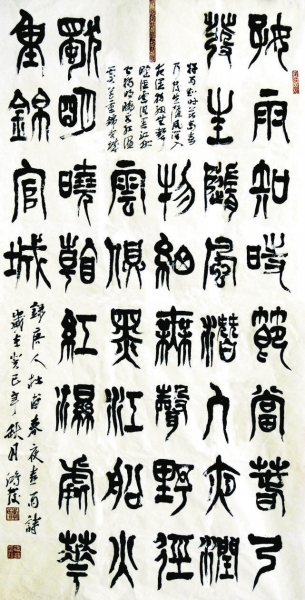 好雨知時節當春乃
發生隨風潛入夜潤
物細無聲野徑
雲俱黑江船火
獨明曉看紅濕處華
重錦官城
好雨知時節當春
乃發生隨風潛入
夜潤物細無聲野
徑雲俱黑江船
火獨明曉看紅濕
處花重錦官城
錄唐人杜甫春夜喜雨詩
歲在癸巳年秋月